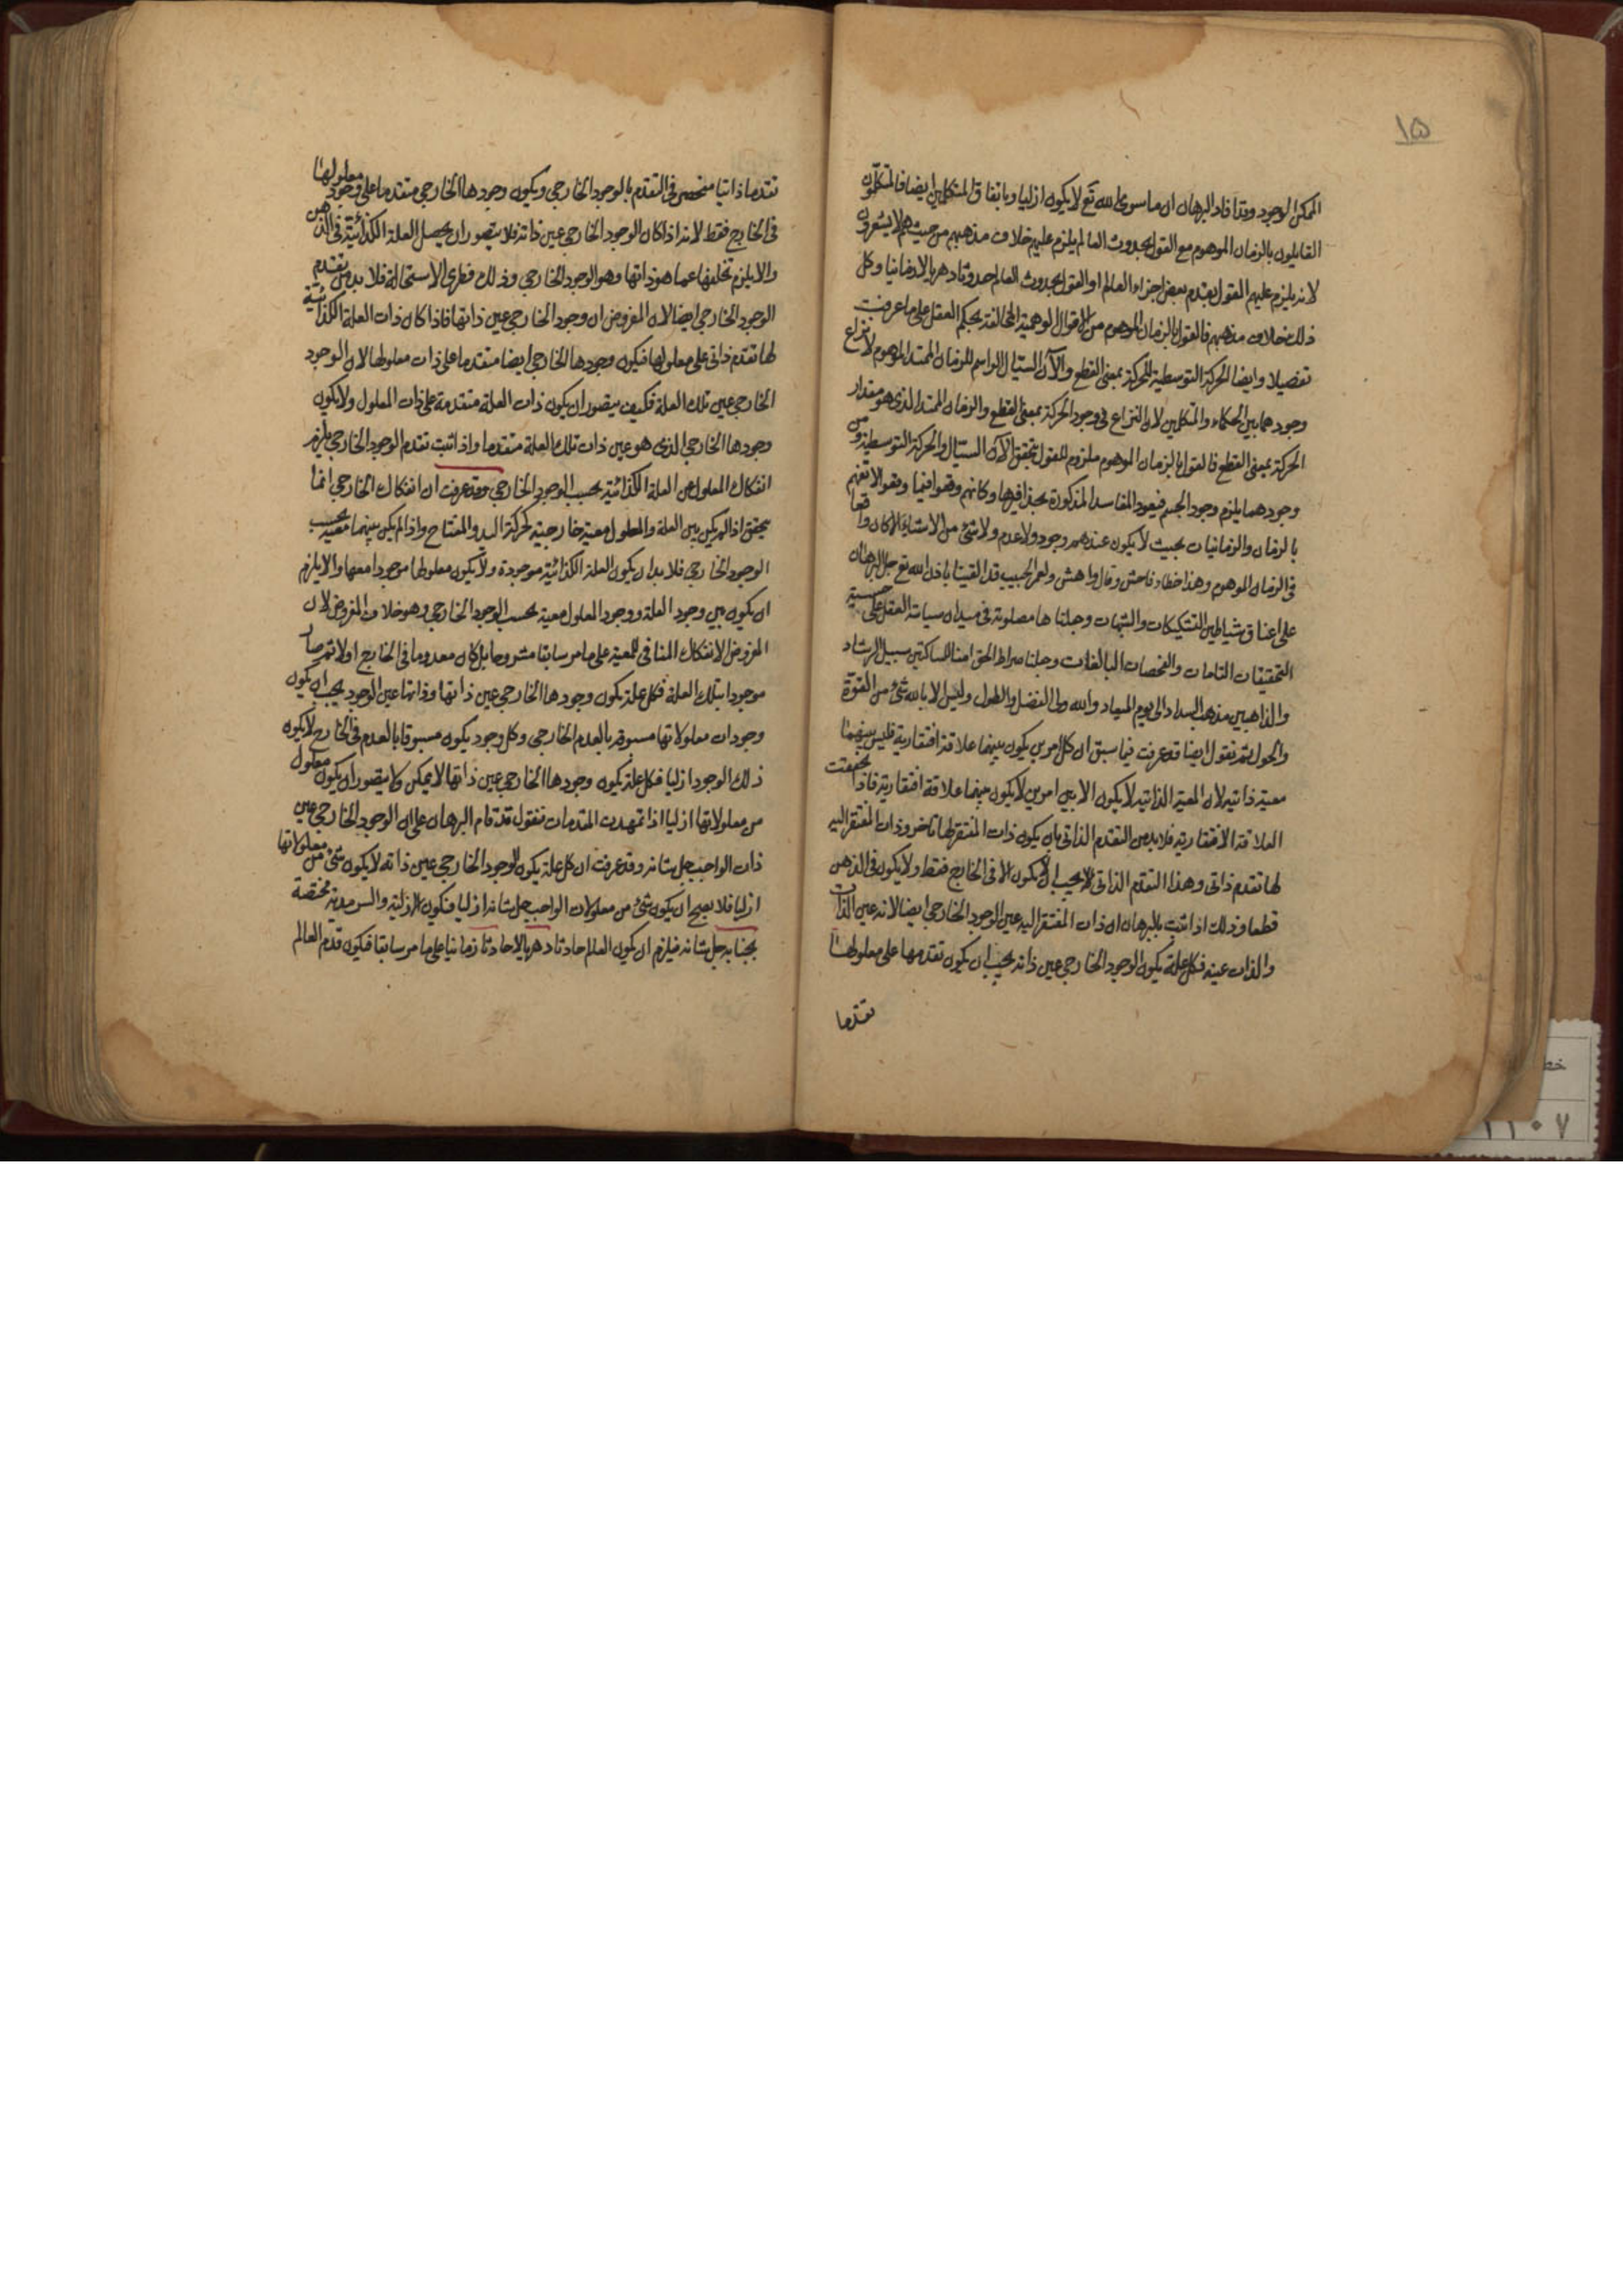 ١٥
الممكن الوجود وقد افاد البرهان ان ما سوى الله تع لا يكون ازليا وباتفاق المتكلمين ايضا فالمتكلمون
القايلون بالزمان الموهوم مع القول بحدوث العالم يلزم عليهم خلاف مذهبهم من حيث هم لا يشعرون
لانه يلزم عليهم القول بقدم بعض اجزاء العالم او القول بحدوث العالم حدوثا دهريا لا زمانيا وكل
ذلك خلاف مذهبهم فالقول بالزمان الموهوم من الاقوال الوهمية المخالفة لحكم العقل على ما عرفت
تفصيلا وايضا الحركة التوسطية للحركة بمعنى القطع والآن السيّال الراسم للزمان الممتد الموهوم لا نزاع
وجودهما بين الحكماء والمتكلمين لان النزاع في وجود الحركة بمعنى القطع والزمان الممتد الذي هو مقدار
الحركة بمعنى القطع فالقول بالزمان الموهوم ملزوم للقول بتحقق الآن السيال والحركة التوسطية ومن
وجودهما يلزم وجود الجسم فيعود المفاسد المذكورة بحذافيرها وكانهم وقعوا فيما
بالزمان والزمانيات بحيث لا يكون عندهم وجود ولا عدم ولا شئ من الاشياء الا كان واقعا
في الزمان الموهوم وهذا خطاء فاحش وقال واهش ولعمر الحبيب قد القينا باذن الله تع حبل البرهان
على اعناق شياطين التشكيكات والشبهات وجعلناها مصلوبة في ميدان سياسة العقل على
التحقيقات التامات والفحصات البالغات وجعلنا صراط الحق امنا للسالكين سبيل الرشاد
والذاهبين مذهب السداد الى يوم الميعاد والله ولي الفضل والطول وليس الا بالله شئ من القوة
والحول ثم نقول ايضا قد عرفت فيما سبق ان كل امرين يكون بينهما علاقة افتقارية فليس بينهما
معية ذاتية لان المعية الذاتية لا يكون الا بين امرين لا يكون بينهما علاقة افتقارية فاذا تحققت
العلاقة الافتقارية فلا بد من التقدم الذاتي بان يكون ذات المفتقر لها تاخر وذات المفتقر اليه
لها تقدم ذاتي وهذا التقدم الذاتي لا يجب ان يكون الا في الخارج فقط ولا يكون في الذهن
قطعا وذلك اذا ثبت بالبرهان ان ذات المفتقر اليه عين الوجود الخارجي ايضا لانه عين الذات
والذات عينه فكل علة يكون الوجود الخارجي عين ذاته يجب ان يكون تقدمها على معلولها
تقدما
تقدما ذاتيا منحصر في التقدم بالوجود الخارجي ويكون وجودها الخارجي متقدما على وجود معلولها
في الخارج فقط لانه اذا كان الوجود الخارجي عين ذاته فلا يتصور ان يحصل العلة الكذائية في الذهن
والا يلزم تخلفها عما هو ذاتها وهو الوجود الخارجي وذلك فطري الاستحالة فلا بد من تقدم
الوجود الخارجي ايضا لان المفروض ان وجود الخارجي عين ذاتها فاذا كان ذات العلة الكذائية
لها تقدم ذاتي على معلولها فيكون وجودها الخارجي ايضا متقدما على ذات معلولها لان الوجود
الخارجي عين تلك العلة فكيف يتصور ان يكون ذات العلة متقدمة على ذات المعلول ولا يكون
وجودها الخارجي الذي هو عين ذات تلك العلة متقدما واذا ثبت تقدم الوجود الخارجي يلزم
انفكاك المعلول عن العلة الكذائية بحسب الوجود الخارجي وقد عرفت ان انفكاك الخارجي انما
يتحقق اذا لم يكن بين العلة والمعلول معية خارجية كحركة اليد والمفتاح واذا لم يكن بينهما معية بحسب
الوجود الخارجي فلا بد ان يكون العلة الكذائية موجودة ولا يكون معلولها موجودا معها والا يلزم
ان يكون بين وجود العلة ووجود المعلول معية بحسب الوجود الخارجي وهو خلاف المفروض لان
المفروض الانفكاك المنافي للمعية على ما مر سابقا مشروحا بل كان معدوما في الخارج اولا ثم صار
موجودا بتلك العلة فكل علة يكون وجودها الخارجي عين ذاتها وذاتها عين الوجود يجب ان يكون
وجودات معلولاتها مسبوقة بالعدم الخارجي وكل وجود يكون مسبوقا بالعدم في الخارج لا يكون
ذلك الوجود ازليا فكل علة يكون وجودها الخارجي عين ذاتها لا يمكن ولا يتصور ان يكون معلول
من معلولاتها ازليا اذا تمهدت المقدمات فنقول قد قام البرهان على ان الوجود الخارجي عين
ذات الواجب جل شانه وقد عرفت ان كل علة يكون الوجود الخارجي عين ذاته لا يكون شئ من معلولاتها
ازليا فلا يصح ان يكون شئ من معلولات الواجب جل شانه ازليا فتكون الازلية والسرمدية مختصة
بجنابه جل شانه فيلزم ان يكون العالم حادثا دهريا لا حادثا زمانيا على ما مر سابقا فيكون قدم العالم
خط
١١٠٧